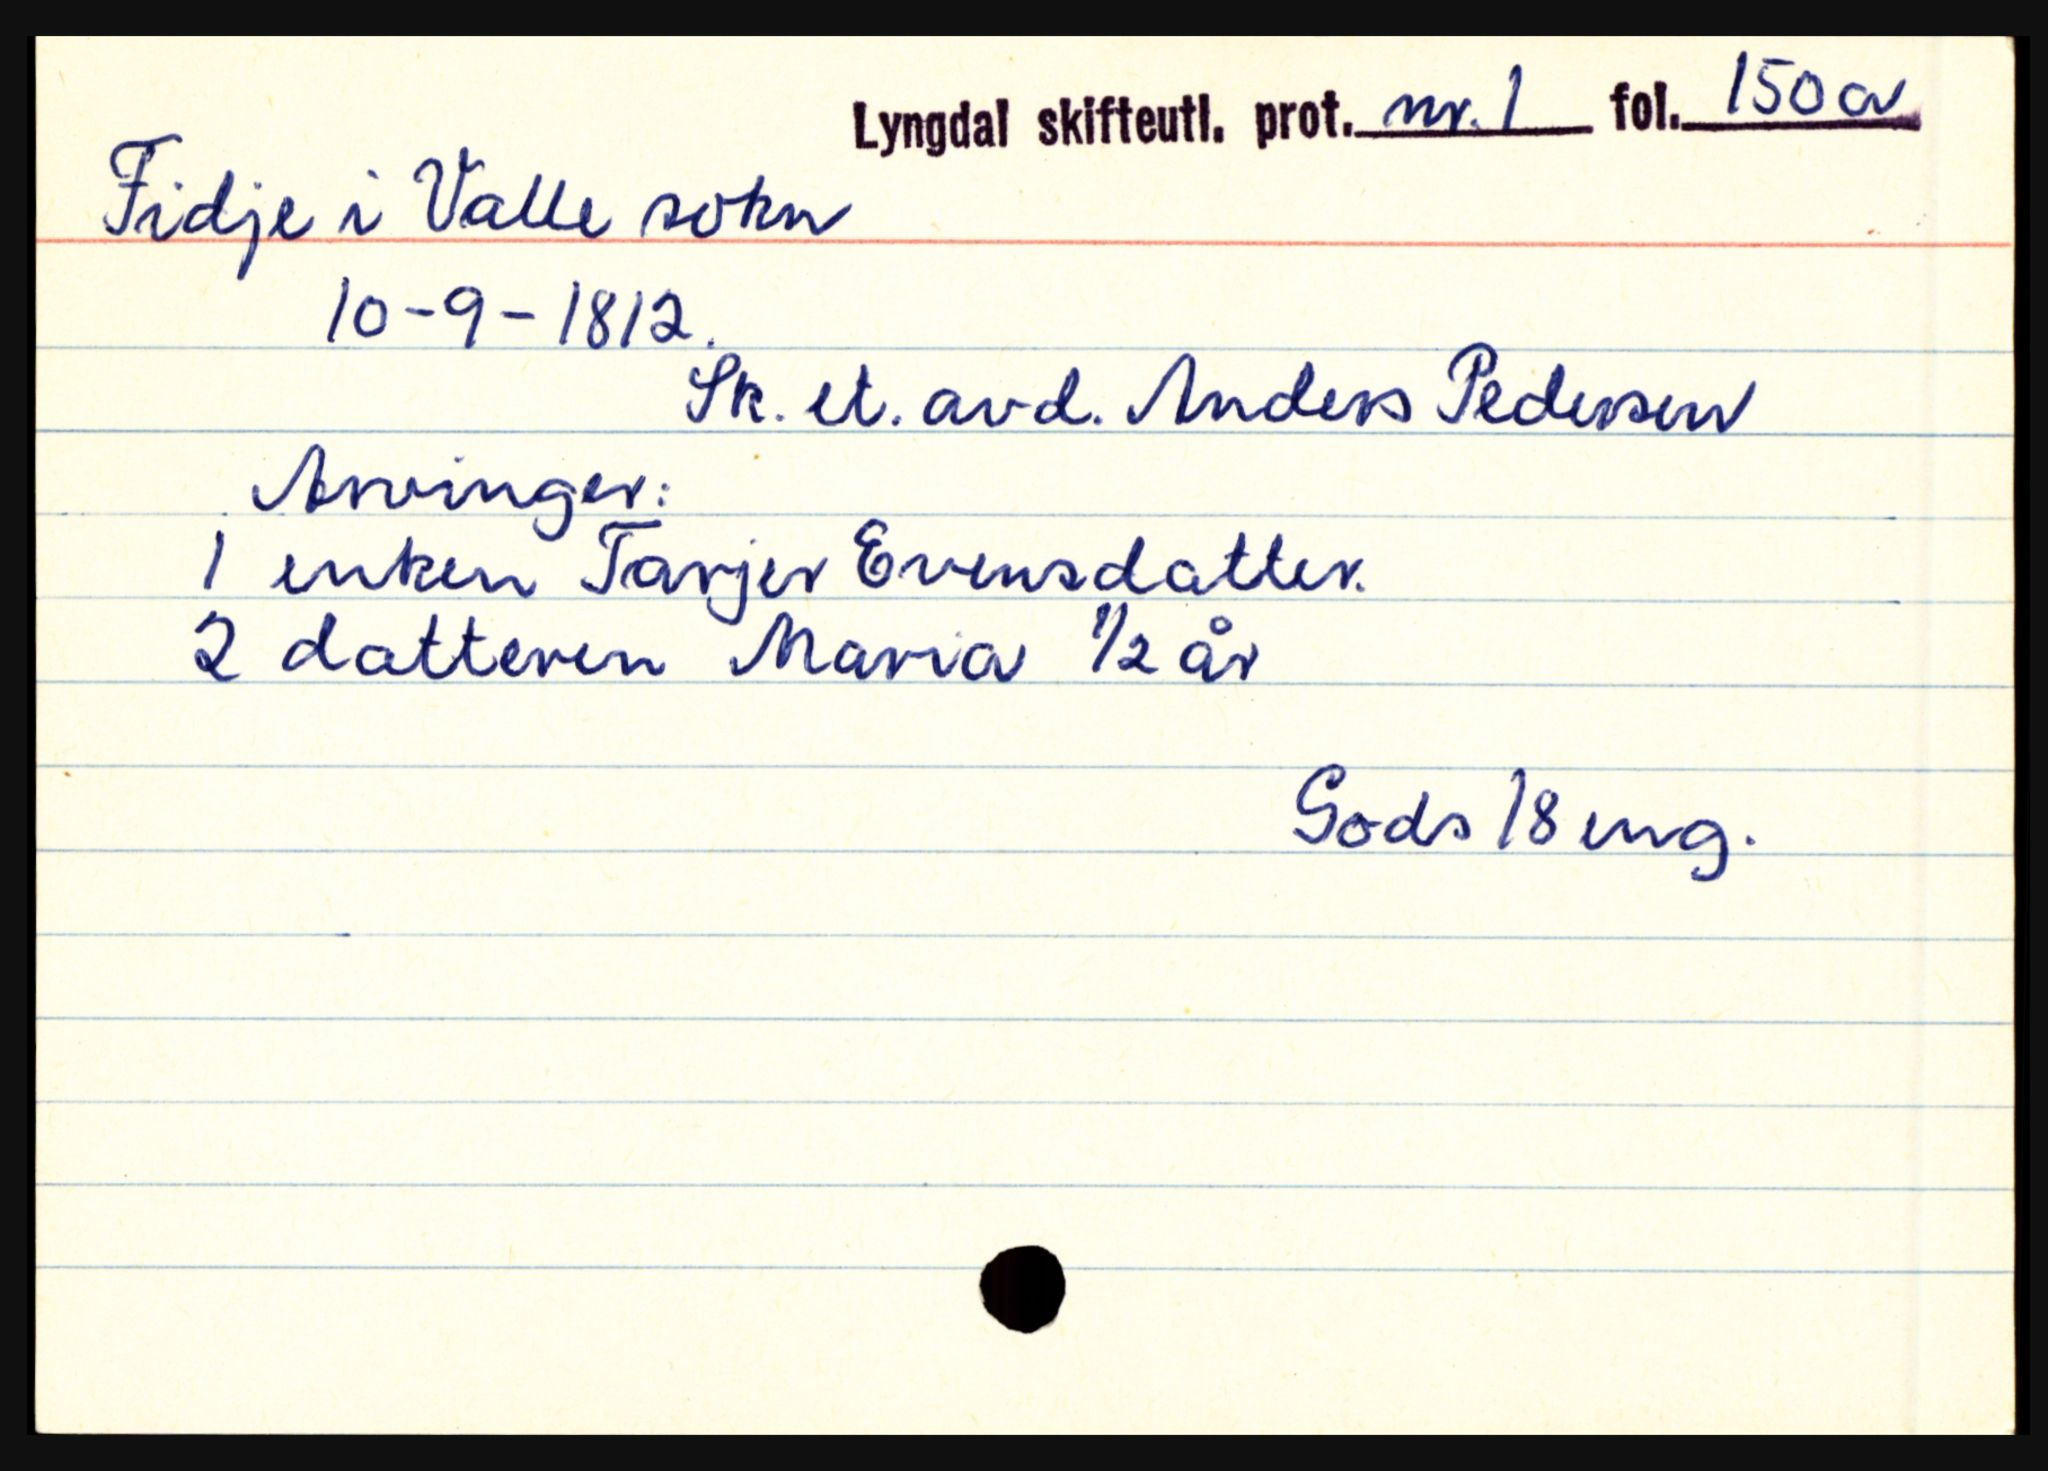 Lyngdal skifteutl. prot. nr. 1 fol. 150 a
Fidje i Valle sokn
10-9-1812.
Sk. et. avd. Anders Pedersen
Arvinger:
1 enken Tarjer Evensdatter.
2 datteren Maria 1/2 år
Gods 18 eng.